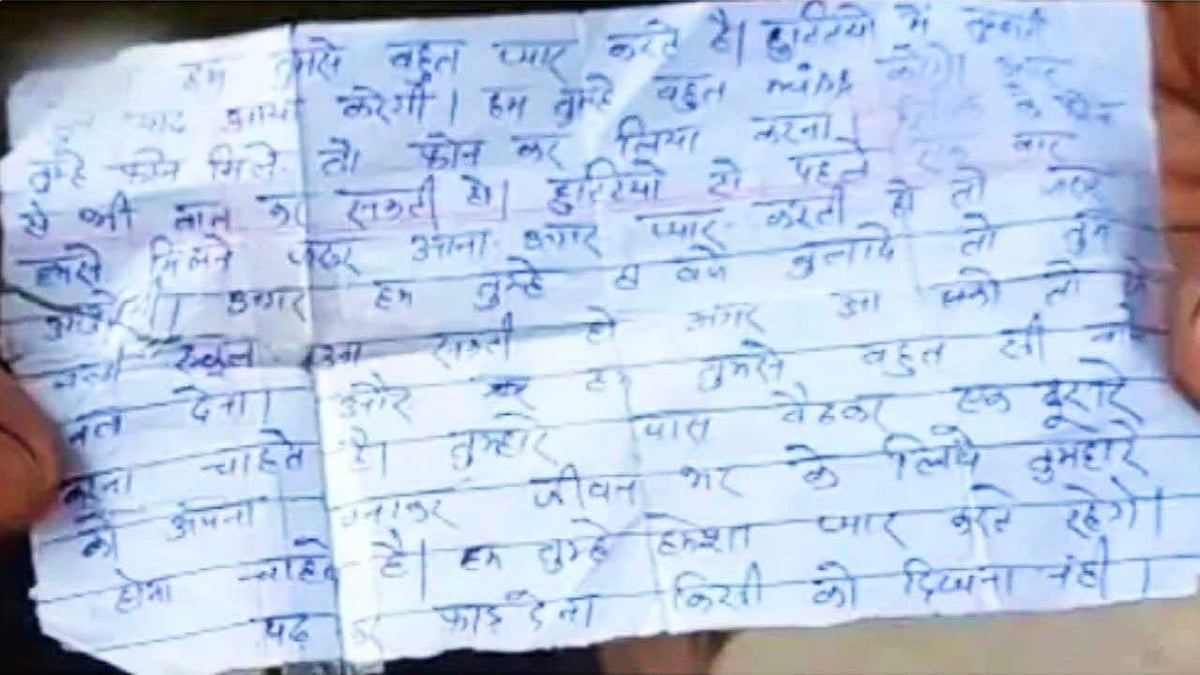 हम तुमसे बहुत प्यार करते है। छुटियो में तुम्हारी
याद आया करेगी। हम तुम्हे बहुत miss करेगे। अगर
तुम्हे फोन मिले तो फोन कर लिया करना।
से भी बात कर सकती हो। छुटियो से पहले एक बार
हमसे मिलने जरूर आना अगर प्यार करती हो तो जरूर
आओगी। अगर हम तुम्हे 8 बजे बुलादे तो तुम
स्कूल आ सकती हो अगर आ सको तो
बता देना। और हम तुमसे बहुत सी बाते
करना चाहते है। तुम्हारे पास बैठकर एक दूसरे
को अपना बनाकर जीवन भर के लिये तुमहारे
होना चाहते है। हम तुम्हे हमेशा प्यार करते रहेगे।
पढ़ कर फाड़ देना किसी को दिखना नंही।